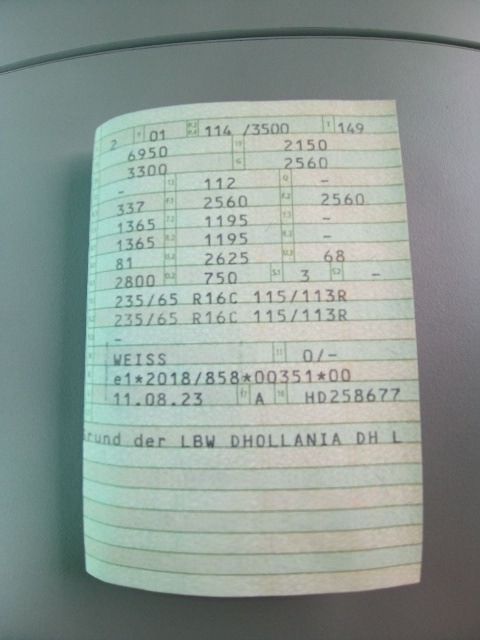 2 01 114 /3500 149
6950 2150
3300 2560
- 112 -
337 2560 2560
1365 1195 -
1365 1195 -
81 2625 68
2800 750 3 -
235/65 R16C 115/113R
235/65 R16C 115/113R
-
WEISS 0/-
e1*2018/858*00351*00
11.08.23 A HD258677
Grund der LBW DHOLLANIA DH L